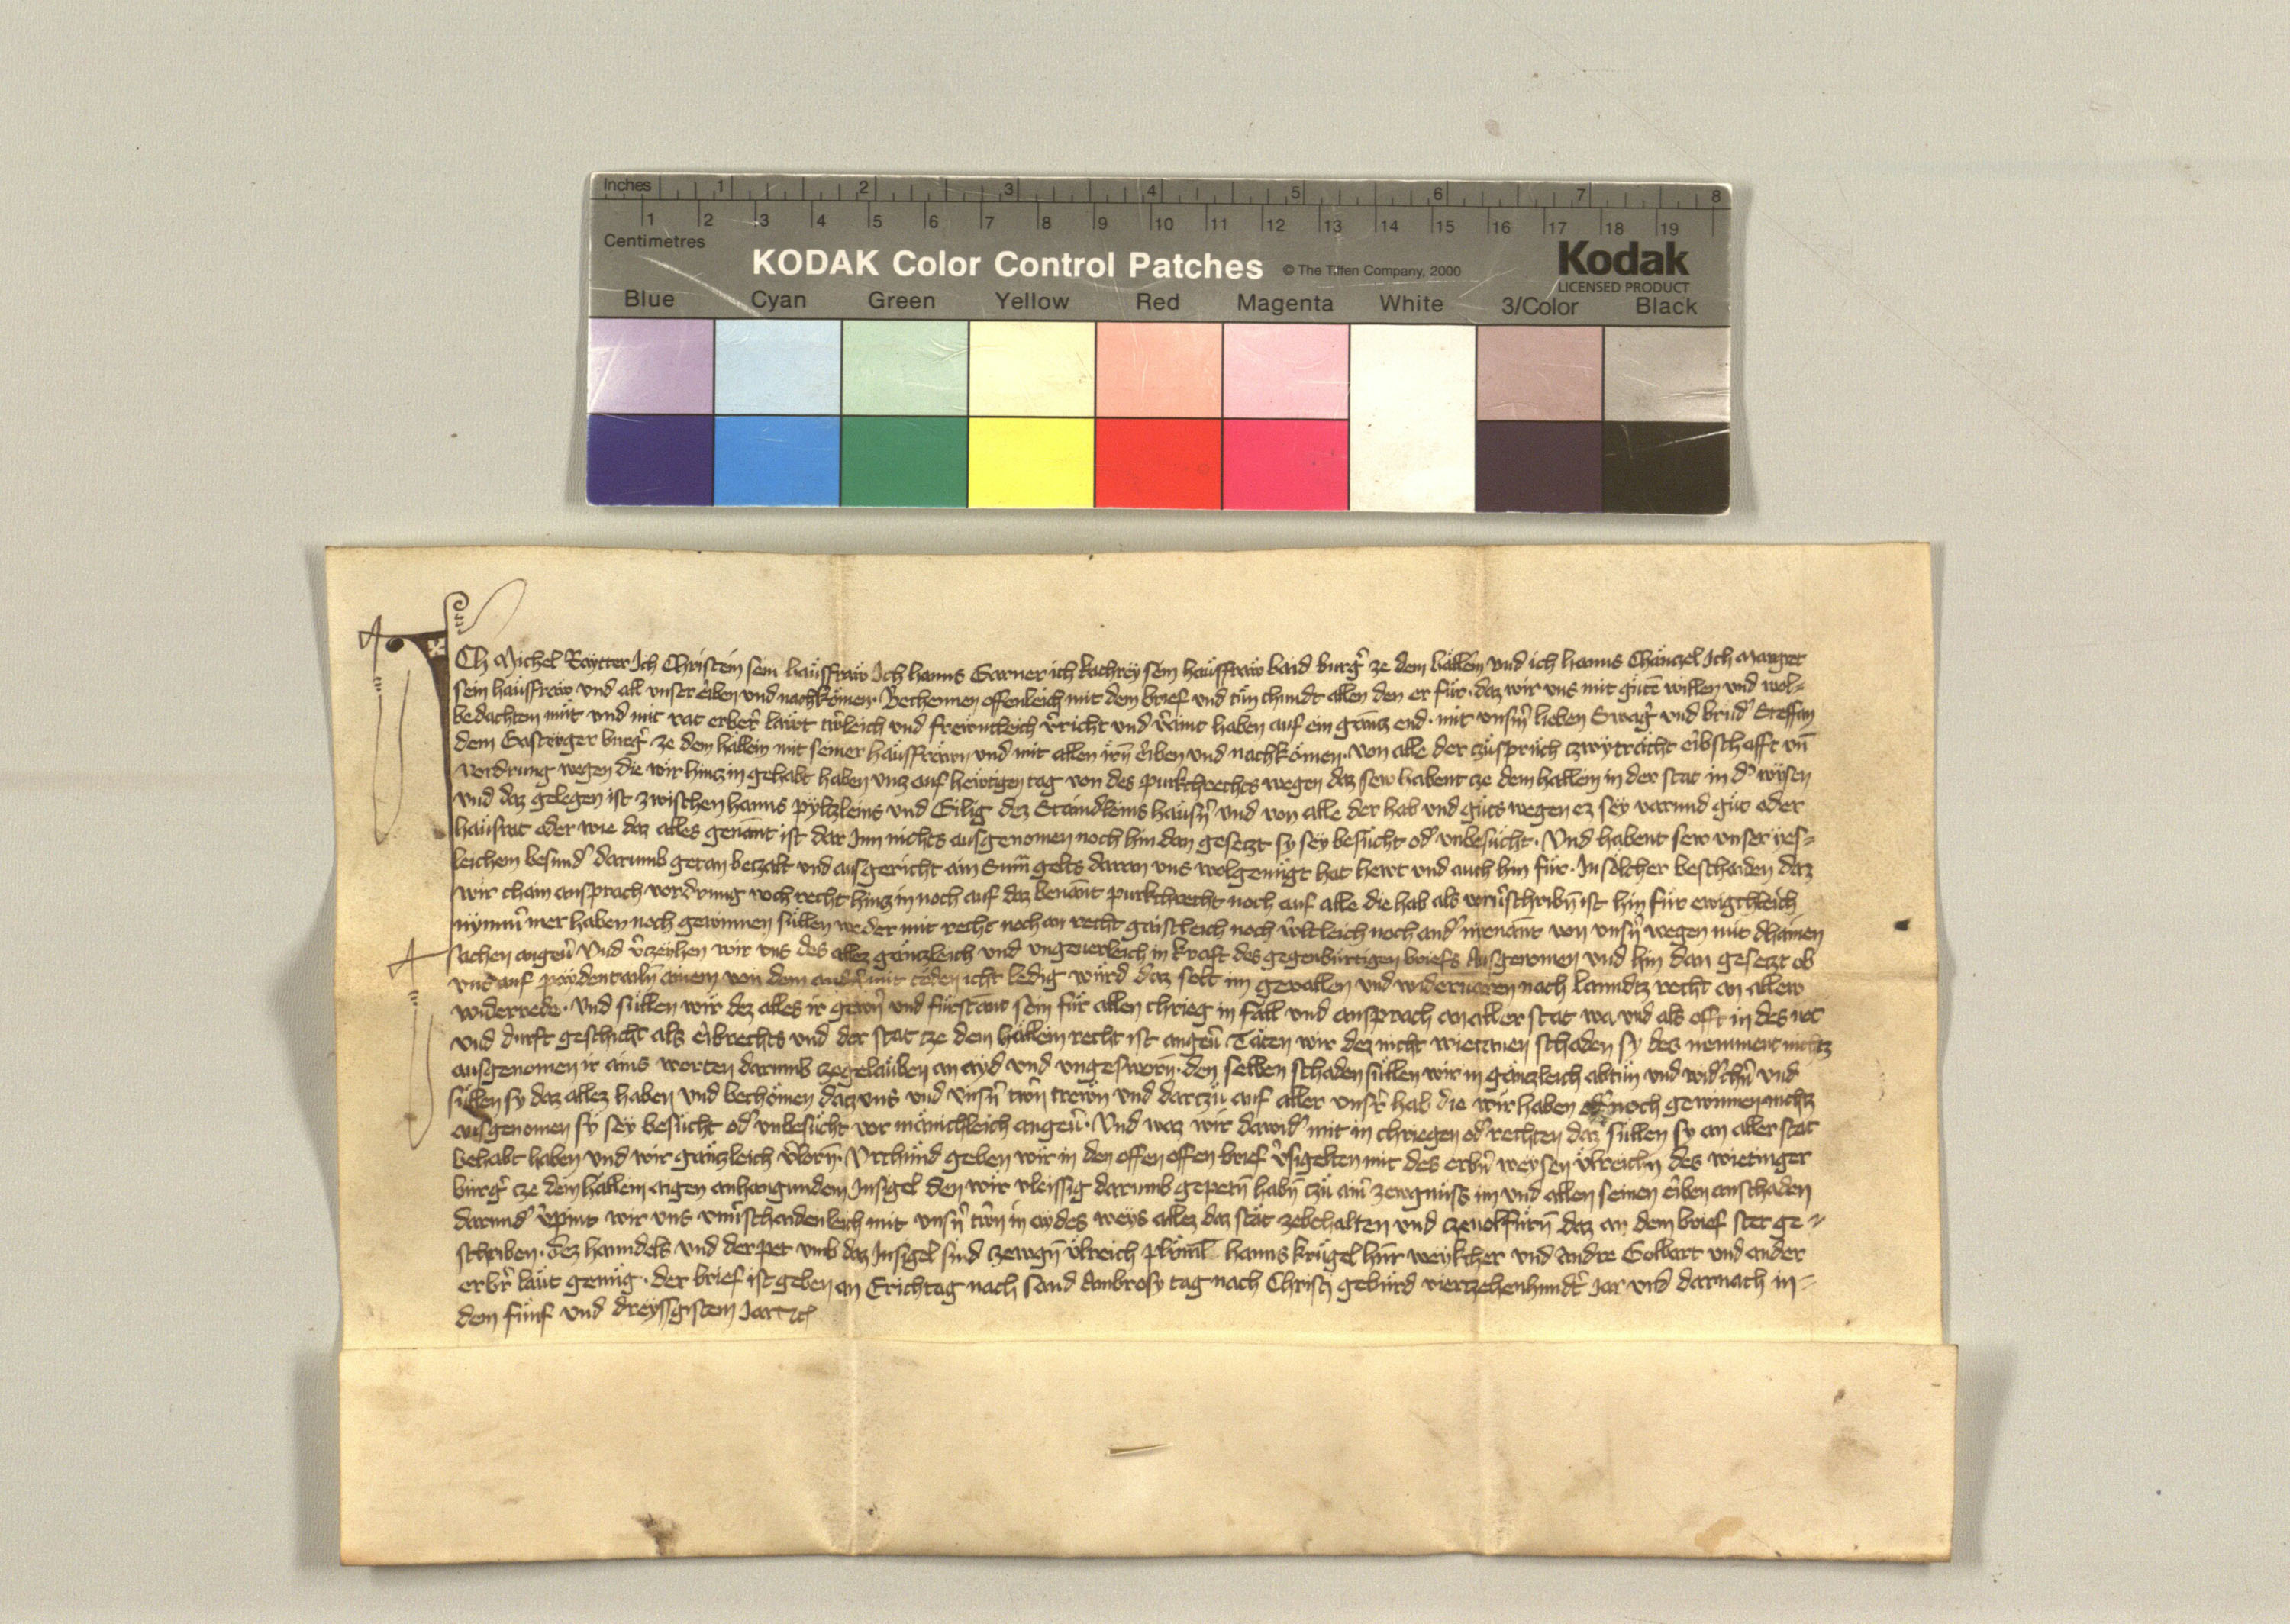 Inches 1 2 3 4 5 6 7 8
1 2 3 4 5 6 7 8 9 10 11 12 13 14 15 16 17 18 19
Centimetres
KODAK Color Control Patches © The Tiffen Company, 2000 Kodak
LICENSED PRODUCT
Blue Cyan Green Yellow Red Magenta White 3/Color Black
ICh Michel Raytter Ich Christein sein haüsffraw Ich hanns Garner ich kathrey sein haüsffraw baid burgˀ ze dem hällein und ich hanns Chänzel Ich Margret
sein haüsffraw und all unser erben und nachkömen. Bechennen offenleich mit dem brief und tün chundt allen den er für. daz wir uns mit gütē willen und wol-
bedachtem müt und mit rat erberˀ läwt trewleich und frewntleich vˀricht und vˀaint haben auf ein gancz end. mit unsˀm lieben Swagˀ und brudˀ Steffan
dem Gastayger burgˀ ze dem hällein mit seiner haüsffrawn und mit allen irn̄ erben und nachkömen. von alle der züsprüch zwyträcht erbschafft un̄
vordrung wegen die wir hincz in gehabt haben uncz auf hewtigen tag von des purkchrechts wegen daz sew habent ze dem hällein in der stat in dˀ wysen
und daz gelegen ist zwischen hanns pyltzleins und Gilig dez Stamdleins häusˀn und von alle der hab und güts wegen ez sey varund güt oder
haüsrat oder wie daz alles genant ist dar Inn nichts ausgenomen noch hin dan gesetzt sy sey besücht odˀ unbesücht. Und habent sew unser yes-
leichem besundˀ darumb getan beczalt und ausgericht ain Sum̄ gelts daran uns wolgenügt hat hewt und auch hin für. In solcher beschaiden daz
wir chain ansprach vordrung noch recht hincz in noch auf daz benant purkchrecht noch auf alle die hab als vorgˀschribn̄ ist hin für ewigchleich
nymmˀ mer haben noch gewinnen süllen weder mit recht noch an recht gaistleich noch wˀltleich noch andˀ niemant von unsˀn wegen mit dhainen
sachen angevˀ Und vˀzeyhen wir uns des allez gänczleich und ungeverleich in kraft des gegenburtigen briefs Ausgenomen und hin dan gesetzt ob
uns auf paydentailn̄ ainem von dem andˀn mit töden icht ledig würd daz solt im gevallen und widervaren nach lanndtz recht an allew
widerrede. Und süllen wir dez alles ir gewˀn und fürstant sein für allen chrieg in fäll und ansprach an aller stat wa und als offt in des not
und durft geschicht als erbrechts und der stat ze dem hällein recht ist angevˀ Täten wir dez nicht wietanen schaden sy des nemment nichtz
ausgenomen ir ains worten darumb zegelauben an ayd und ungesworn̄. den selben schaden süllen wir in gänczleich abtün und widˀchˀn und
süllen sy daz allez haben und bechömen datz uns und unsˀn trewn trewn und darczü auf aller unsrˀ hab die wir haben odˀ noch gewinnen nichtz
ausgenomen sy sey besücht odˀ unbesücht vor mänichleich angevˀ. Und waz wir dawidˀ mit in chriegen odˀ rechten daz süllen sy an aller stat
behabt haben und wir gänczleich vˀlorn̄. Urchund geben wir in den offen offen brief vˀsigelten mit des erbˀn weysen Ulreichn̄ des wietinger
burgˀ ze dem hällein aigen anhangundem Insigel den wir vleissig darumb gepetn̄ habn̄ czü aimˀ zewgnüss im und allen seinen erben anschaden
darundˀ vˀpint wir uns unvˀschaidenleich mit unsˀn trewn in aydes weys allez daz stät zebehalten und zevolfürn̄ daz an dem brief stet ge-
schriben. Dez hanndels und der pet umb daz Insigel sind zewgn̄ Ulreich hanns krügel und Andre Golbart und ander
erbˀr läut genüg. der brief ist geben an Erichtag nach sand Ambrosy tag nach Christi gebürd vierzehenhundˀt Jar und darnach in-
dem fünf und dreyssgistem Jar etc